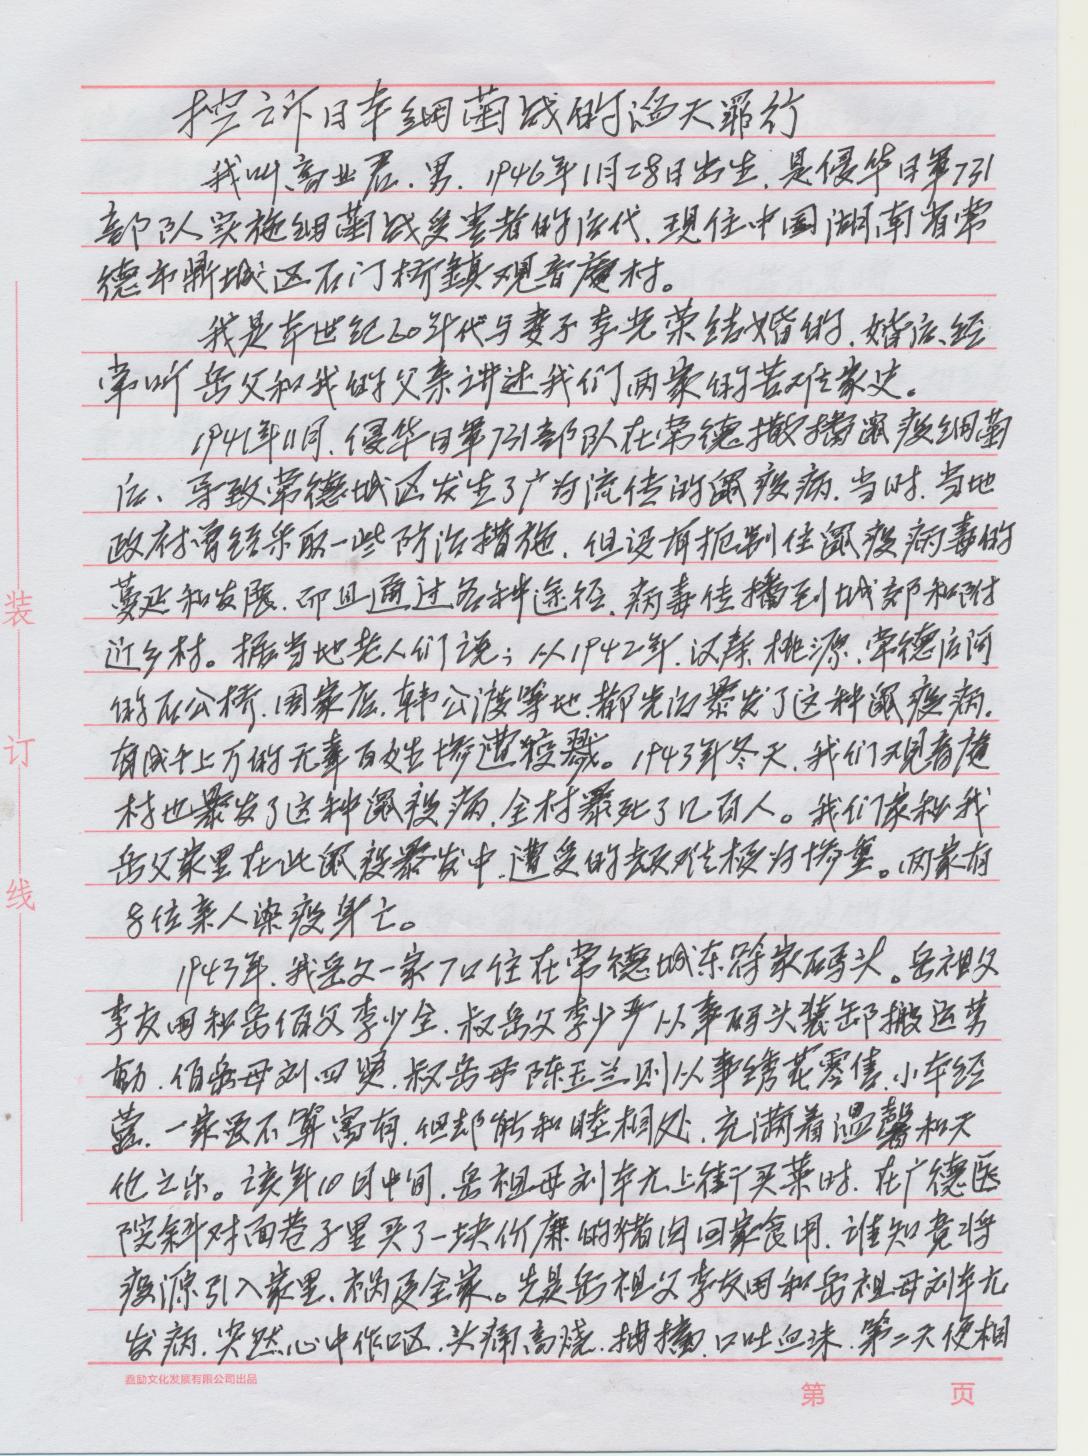 控诉日本细菌战的滔天罪行
我叫高业君、男、1946年11月28日出生、是侵华日军731
部队实施细菌战受害者的后代、现住中国湖南省常
德市鼎城区石门桥镇观音庵村。
我是本世纪60年代与妻子李光荣结婚的、婚后、经
常听岳父和我的父亲讲述我们两家的苦难家史。
1941年11月、侵华日军731部队在常德撒播鼠疫细菌
后、导致常德城区发生了广为流传的鼠疫病、当时、当地
政府曾经采取一些防治措施、但没有扼制住鼠疫病毒的
蔓延和发展、而且通过各种途径、病毒传播到城郊和附
近乡村。据当地老人们说；从1942年、汉寿、桃源、常德后河
的石公桥、周家店、韩公渡等地、都先后暴发了这种鼠疫病、
有成千上万的无辜百姓惨遭疫戮。1943年冬天、我们观音庵
村也暴发了这种鼠疫病、全村暴死了几百人。我们家和我
岳父家里在此鼠疫暴发中、遭受的劫难极为惨重。两家有
8位亲人染疫身亡。
1943年、我岳父一家7口住在常德城东徐家码头。岳祖父
李友用和岳伯父李少全、叔岳父李少严从事码头装卸搬运劳
动、伯岳母刘四贤、叔岳母陈玉兰则从事绣花零售、小本经
营、一家虽不算富有、但却能和睦相处、充满着温馨和天
伦之乐。该年10月中间、岳祖母刘本九上街买菜时、在广德医
院斜对面巷子里买了一块价廉的猪肉回家食用、谁知竟将
疫源引入家里、祸及全家。先是岳祖父李友用和岳祖母刘本九
发病、突然心中作呕、头痛高烧、抽搐、口吐血珠、第二天便相
装
订
线
嘉励文化发展有限公司出品
第 页